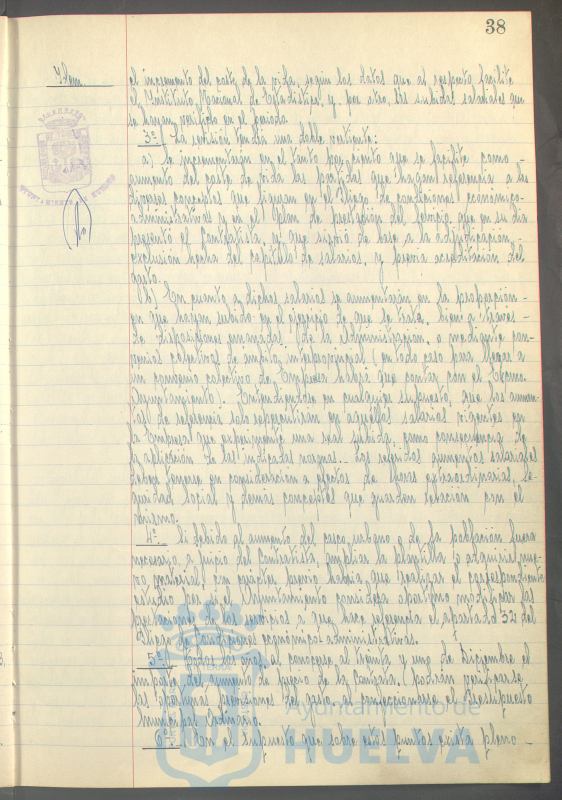 38
Idem.
el incremento del coste de la vida, según los datos que al respecto facilite
el Instituto Nacional de Estadística, y por otro, las subidas salariales que
se hayan vertido en el periodo.
3º/ La revisión tendrá una doble vertiente:
a) Se incrementarán en el tanto por ciento que se facilite como
aumento del coste de vida las partidas que hagan referencia a los
diversos conceptos que figuran en el Pliego de condiciones económico-
administrativas y en el Plan de prestación del Servicio que en su día
presentó el Contratista, y que sirvió de base a la adjudicación,
exclusión hecha del capítulo de salarios, y previa acreditación del
gasto.
b) En cuanto a dichos salarios se aumentarán en la proporción
en que hayan subido en el ejercicio de que se trata, bien a través
de disposiciones emanadas de la Administración, o mediante con-
venios colectivos de ámbito interprovincial (en todo caso para llegar a
un convenio colectivo de Empresa habrá que contar con el Excmo.
Ayuntamiento). Entendiéndose en cualquier supuesto, que los aumen-
tos de referencia solo repercutirán en aquellos salarios vigentes en
la Empresa que experimente una real subida, como consecuencia de
la aplicación de las indicadas normas. Los referidos aumentos salariales
deben tenerse en consideración a efectos de horas extraordinarias, Se-
guridad Social y demás conceptos que guarden relación con el
mismo.
4º Si debido al aumento del casco urbano o de la población fuera
necesario, a juicio del Contratista, ampliar la plantilla o adquirir nue-
vo material, con carácter previo habría que realizar el correspondiente
estudio por si el Ayuntamiento considera oportuno modificar las
prestaciones de los servicios a que hace referencia el apartado 32 del
Pliego de Condiciones económico administrativas.
5º/ Todos los años, al conocerse al treinta y uno de Diciembre el
importe del aumento de precio de la contrata, podrán verificarse
las oportunas previsiones del gasto, al confeccionarse el Presupuesto
Municipal Ordinario.
6º/ En el supuesto que sobre estos puntos exista pleno
Ayuntamiento de
HUELVA